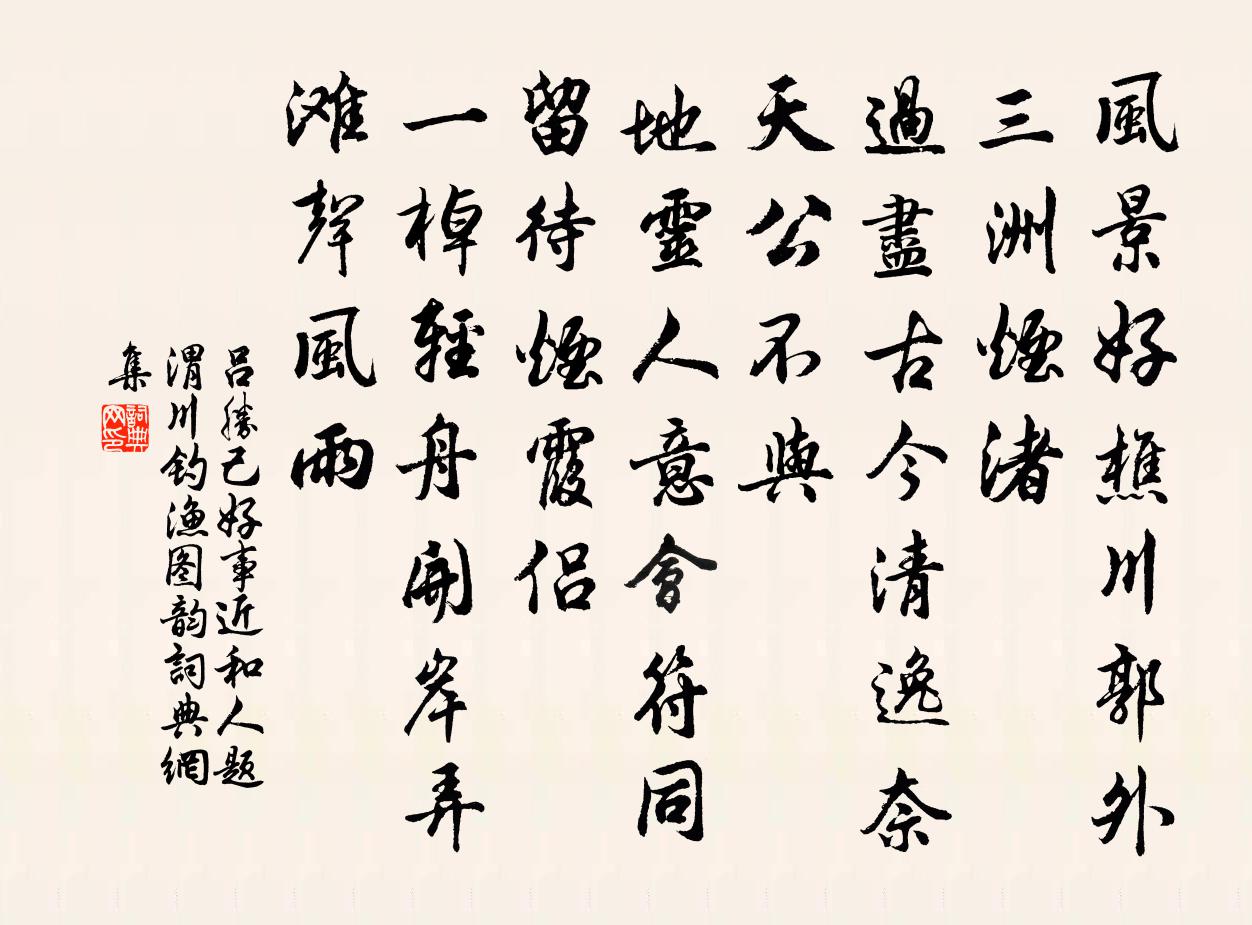 風景好樵川郭外
三洲煙渚
過盡古今清逸奈
天公不與
地靈人意會符同
留待煙霞侶
一棹輕舟開岸弄
滩聲風雨
吕勝己好事近和人题
渭川钓渔图韵詞典網
集
詞典网印